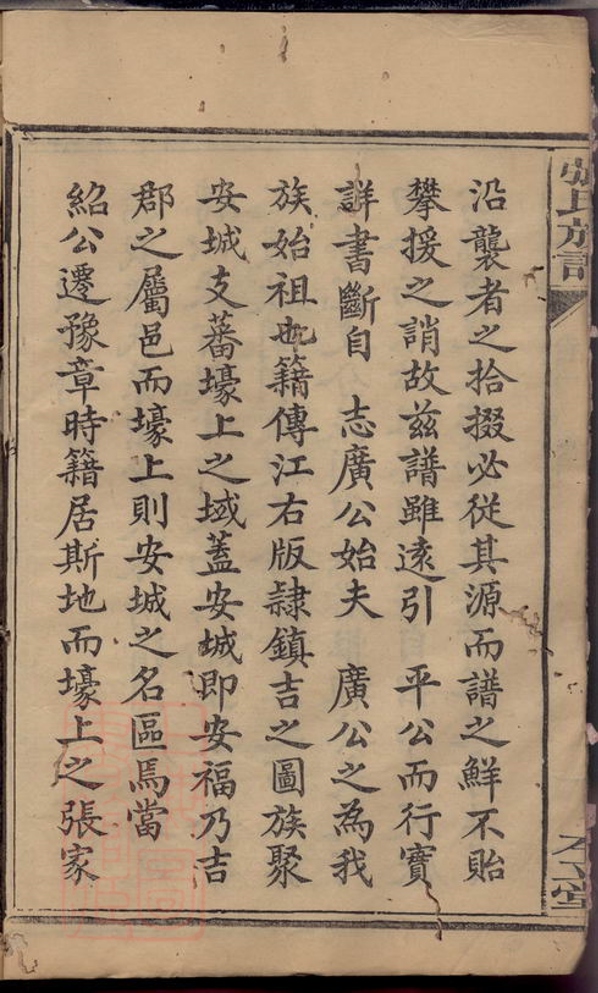 沿襲者之拾掇必從其源而譜之鮮不貽
攀援之誚故茲譜雖遠引 平公而行實
詳書斷自 志廣公始夫 廣公之為我
族始祖也籍傳江右版隸鎮吉之圖族聚
安城支蕃壕上之域蓋安城即安福乃吉
郡之屬邑而壕上則安城之名區焉當
紹公遷豫章時籍居斯地而壕上之張家